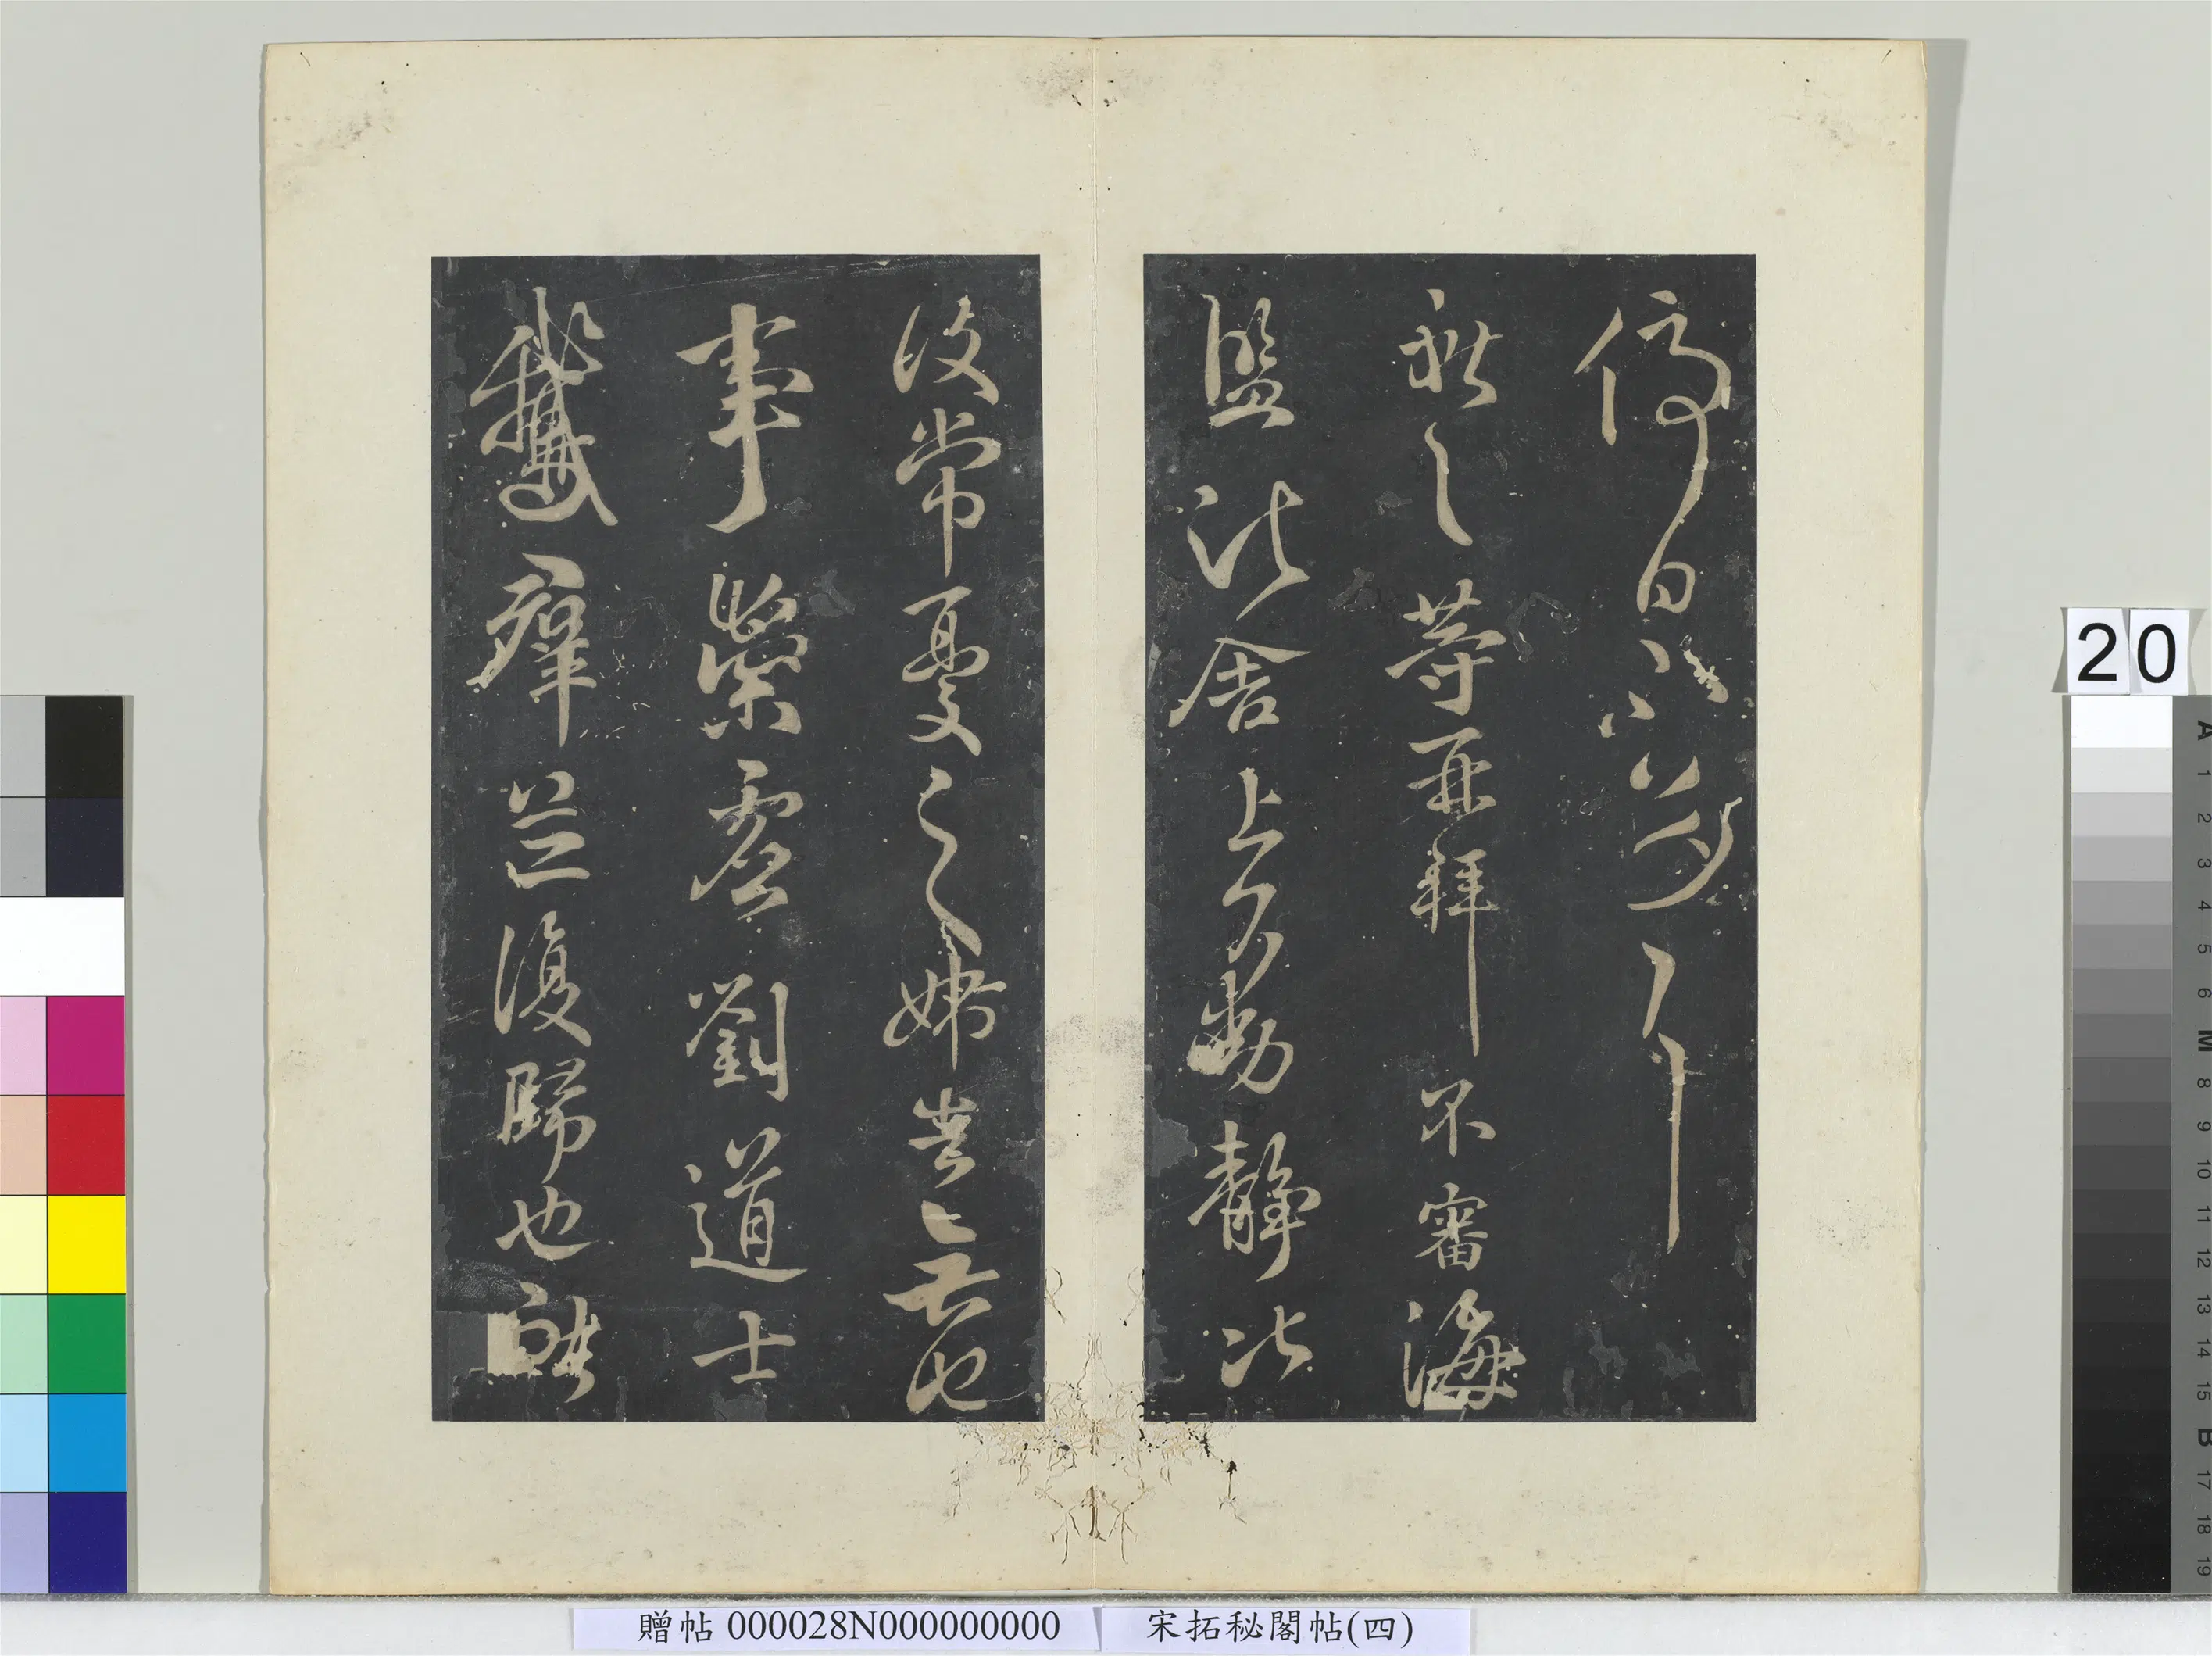 停日
獻之等再拜不審海
鹽諸舍上下動靜比
復常憂之姊告無他
事崇虛劉道士
鵝群並復歸也獻
20
A 1 2 3 4 5 6 M 8 9 10 11 12 13 14 15 B 17 18 19
贈帖 000028N000000000
宋拓秘閣帖(四)